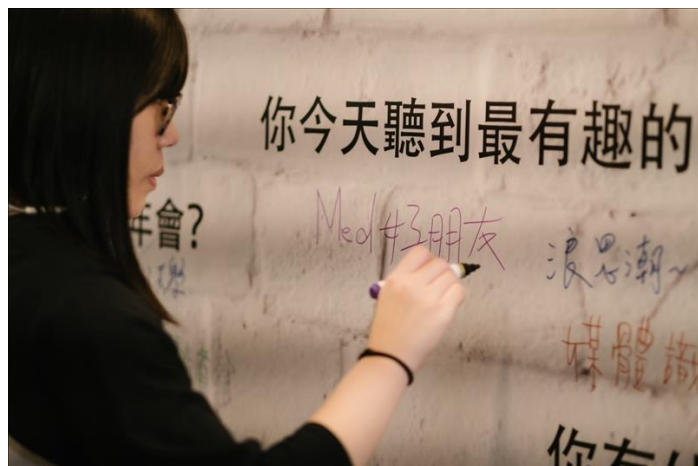 你今天聽到最有趣的
年會?
Med好朋友
浪思潮~
媒體
你有什